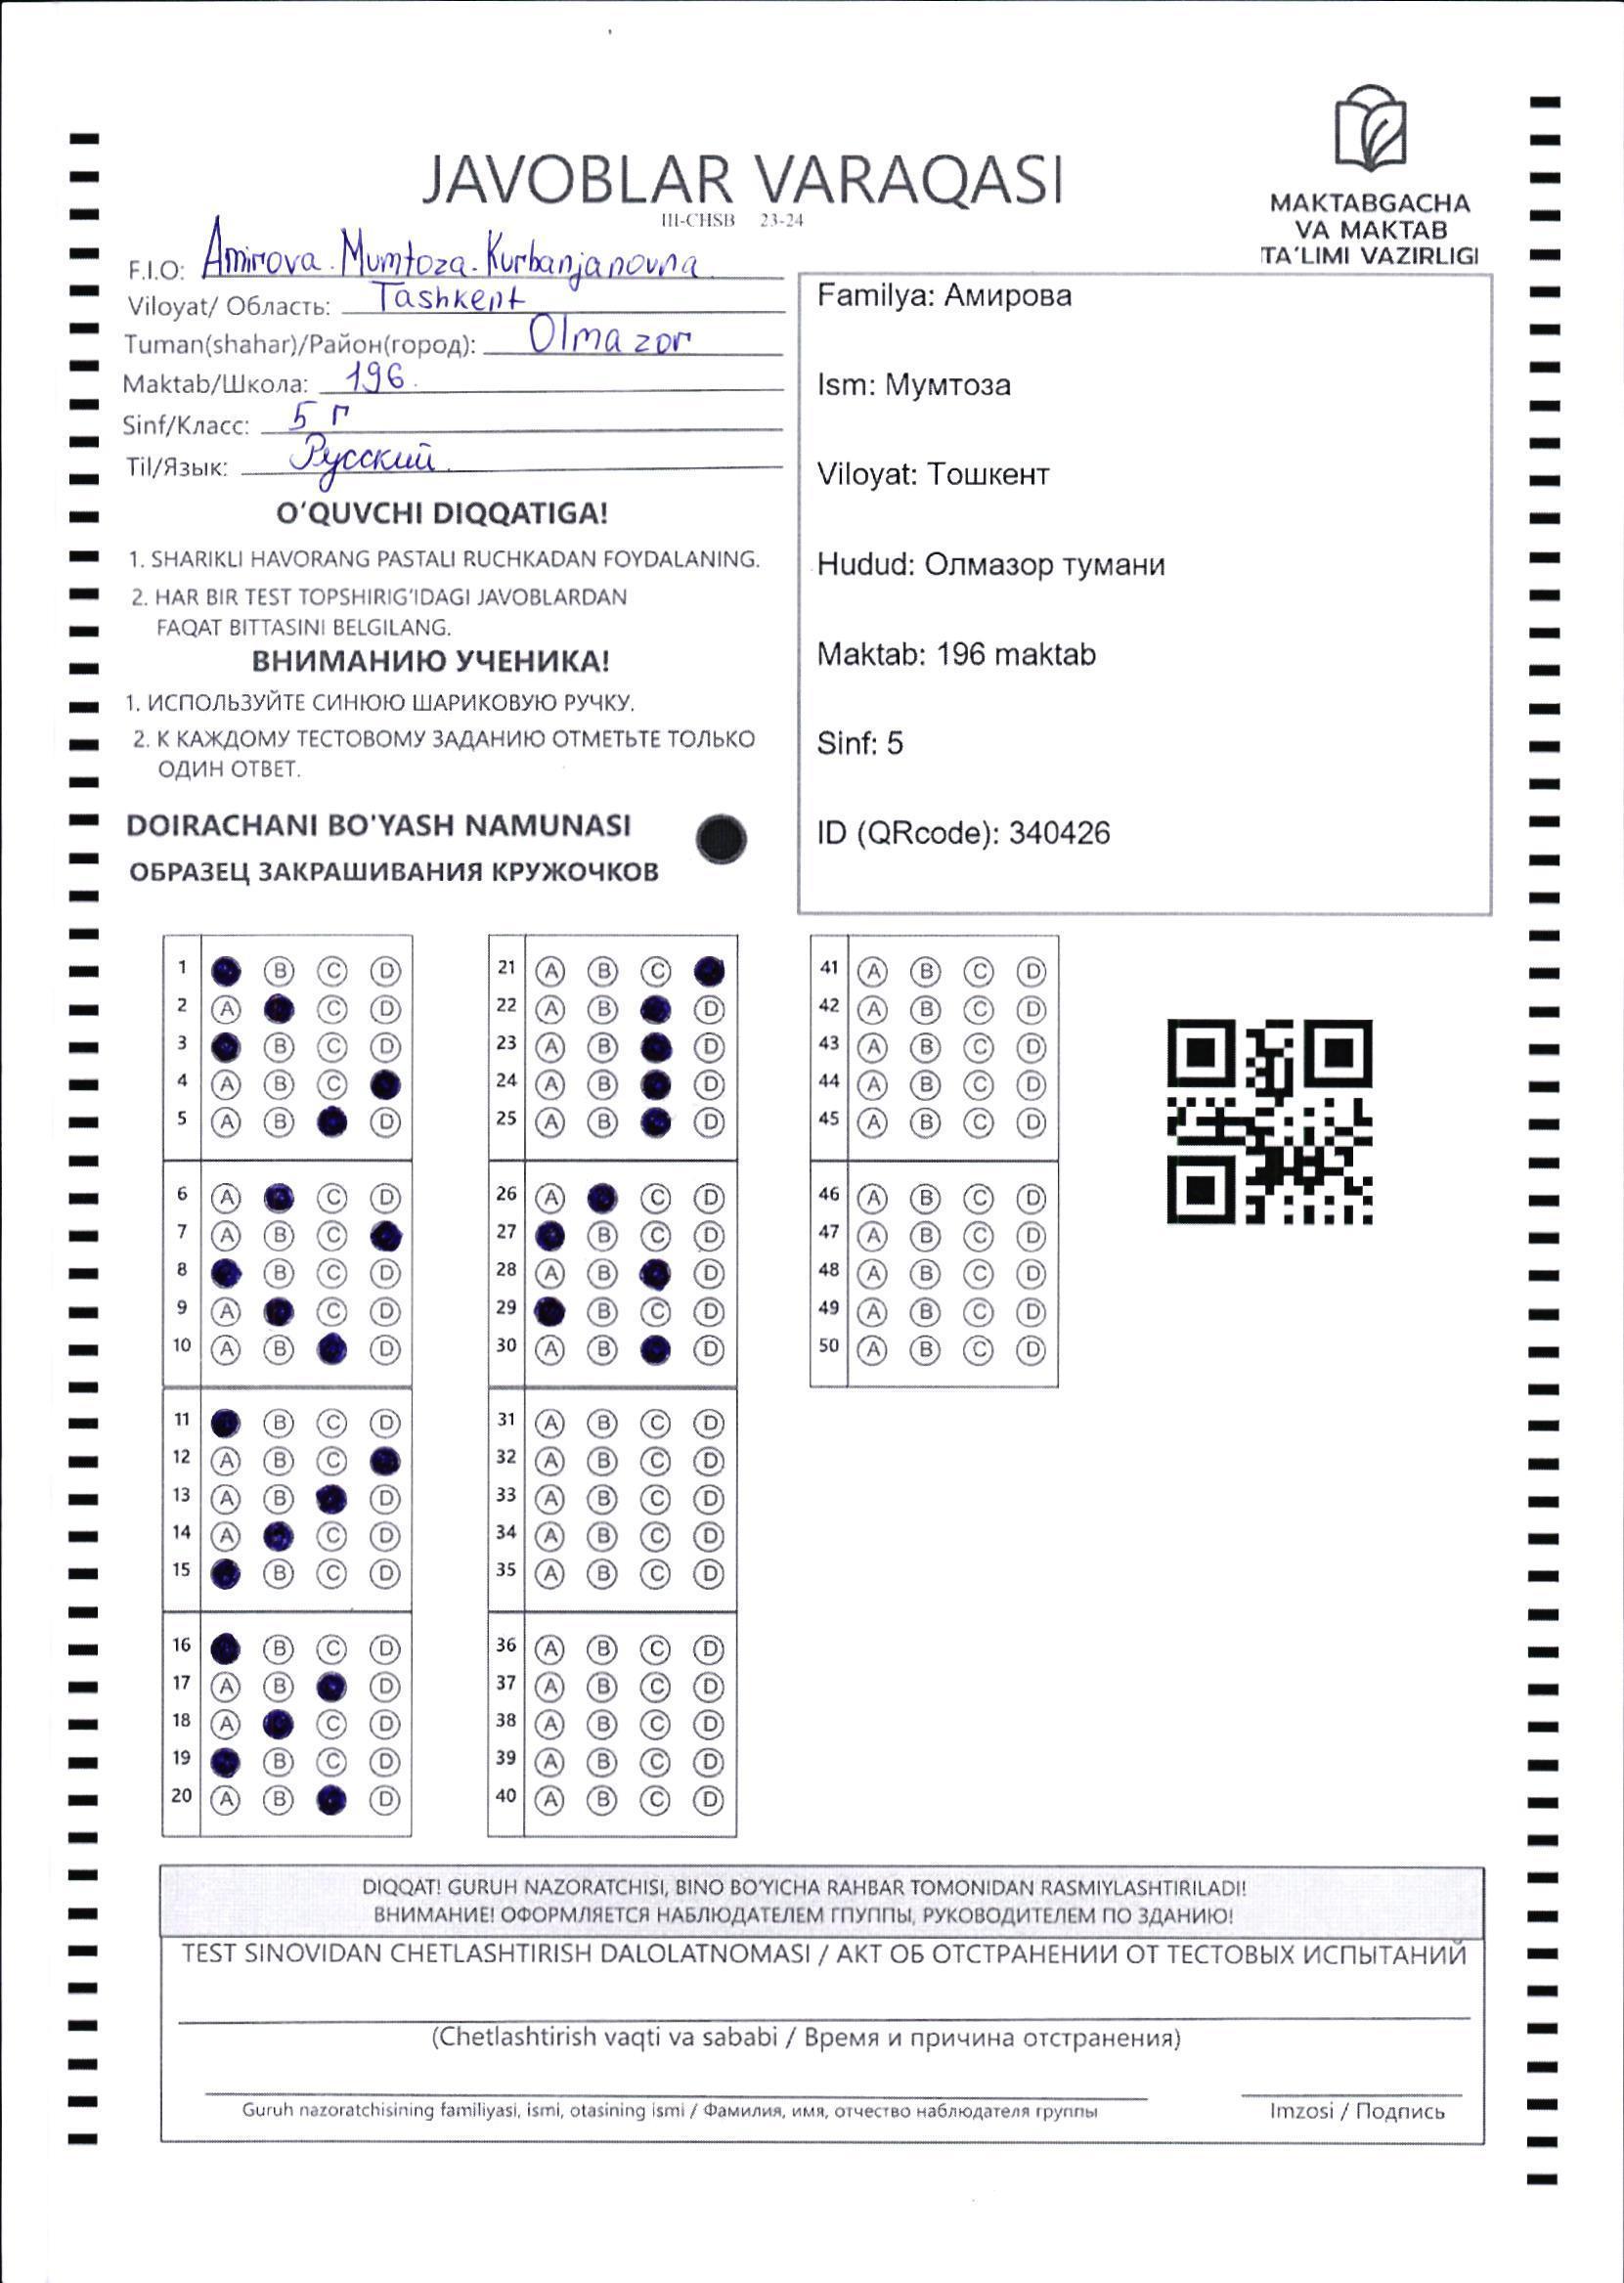 JAVOBLAR VARAQASI
III-CHSB 23-24
MAKTABGACHA
VA MAKTAB
TA'LIMI VAZIRLIGI
F.I.O: Amirova Mumtoza Kurbanjanovna
Viloyat/ Область: Tashkent
Tuman(shahar)/Район(город): Olmazor
Maktab/Школа: 196
Sinf/Класс: 5 г
Til/Язык: Русский
O'QUVCHI DIQQATIGA!
1. SHARIKLI HAVORANG PASTALI RUCHKADAN FOYDALANING.
2. HAR BIR TEST TOPSHIRIG'IDAGI JAVOBLARDAN
FAQAT BITTASINI BELGILANG.
ВНИМАНИЮ УЧЕНИКА!
1. ИСПОЛЬЗУЙТЕ СИНЮЮ ШАРИКОВУЮ РУЧКУ.
2. К КАЖДОМУ ТЕСТОВОМУ ЗАДАНИЮ ОТМЕТЬТЕ ТОЛЬКО
ОДИН ОТВЕТ.
DOIRACHANI BO'YASH NAMUNASI
ОБРАЗЕЦ ЗАКРАШИВАНИЯ КРУЖОЧКОВ
Familya: Амирова
Ism: Мумтоза
Viloyat: Тошкент
Hudud: Олмазор тумани
Maktab: 196 maktab
Sinf: 5
ID (QRcode): 340426
1 B C D
2 A C D
3 B C D
4 A B C
5 A B D
6 A C D
7 A B C
8 B C D
9 A C D
10 A B D
11 B C D
12 A B C
13 A B D
14 A C D
15 B C D
16 B C D
17 A B D
18 A C D
19 B C D
20 A B D
21 A B C
22 A B D
23 A B D
24 A B D
25 A B D
26 A C D
27 B C D
28 A B D
29 B C D
30 A B D
31 A B C D
32 A B C D
33 A B C D
34 A B C D
35 A B C D
36 A B C D
37 A B C D
38 A B C D
39 A B C D
40 A B C D
41 A B C D
42 A B C D
43 A B C D
44 A B C D
45 A B C D
46 A B C D
47 A B C D
48 A B C D
49 A B C D
50 A B C D
DIQQAT! GURUH NAZORATCHISI, BINO BO'YICHA RAHBAR TOMONIDAN RASMIYLASHTIRILADI!
ВНИМАНИЕ! ОФОРМЛЯЕТСЯ НАБЛЮДАТЕЛЕМ ГПУППЫ, РУКОВОДИТЕЛЕМ ПО ЗДАНИЮ!
TEST SINOVIDAN CHETLASHTIRISH DALOLATNOMASI / АКТ ОБ ОТСТРАНЕНИИ ОТ ТЕСТОВЫХ ИСПЫТАНИЙ
(Chetlashtirish vaqti va sababi / Время и причина отстранения)
Guruh nazoratchisining familiyasi, ismi, otasining ismi / Фамилия, имя, отчество наблюдателя группы
Imzosi / Подпись